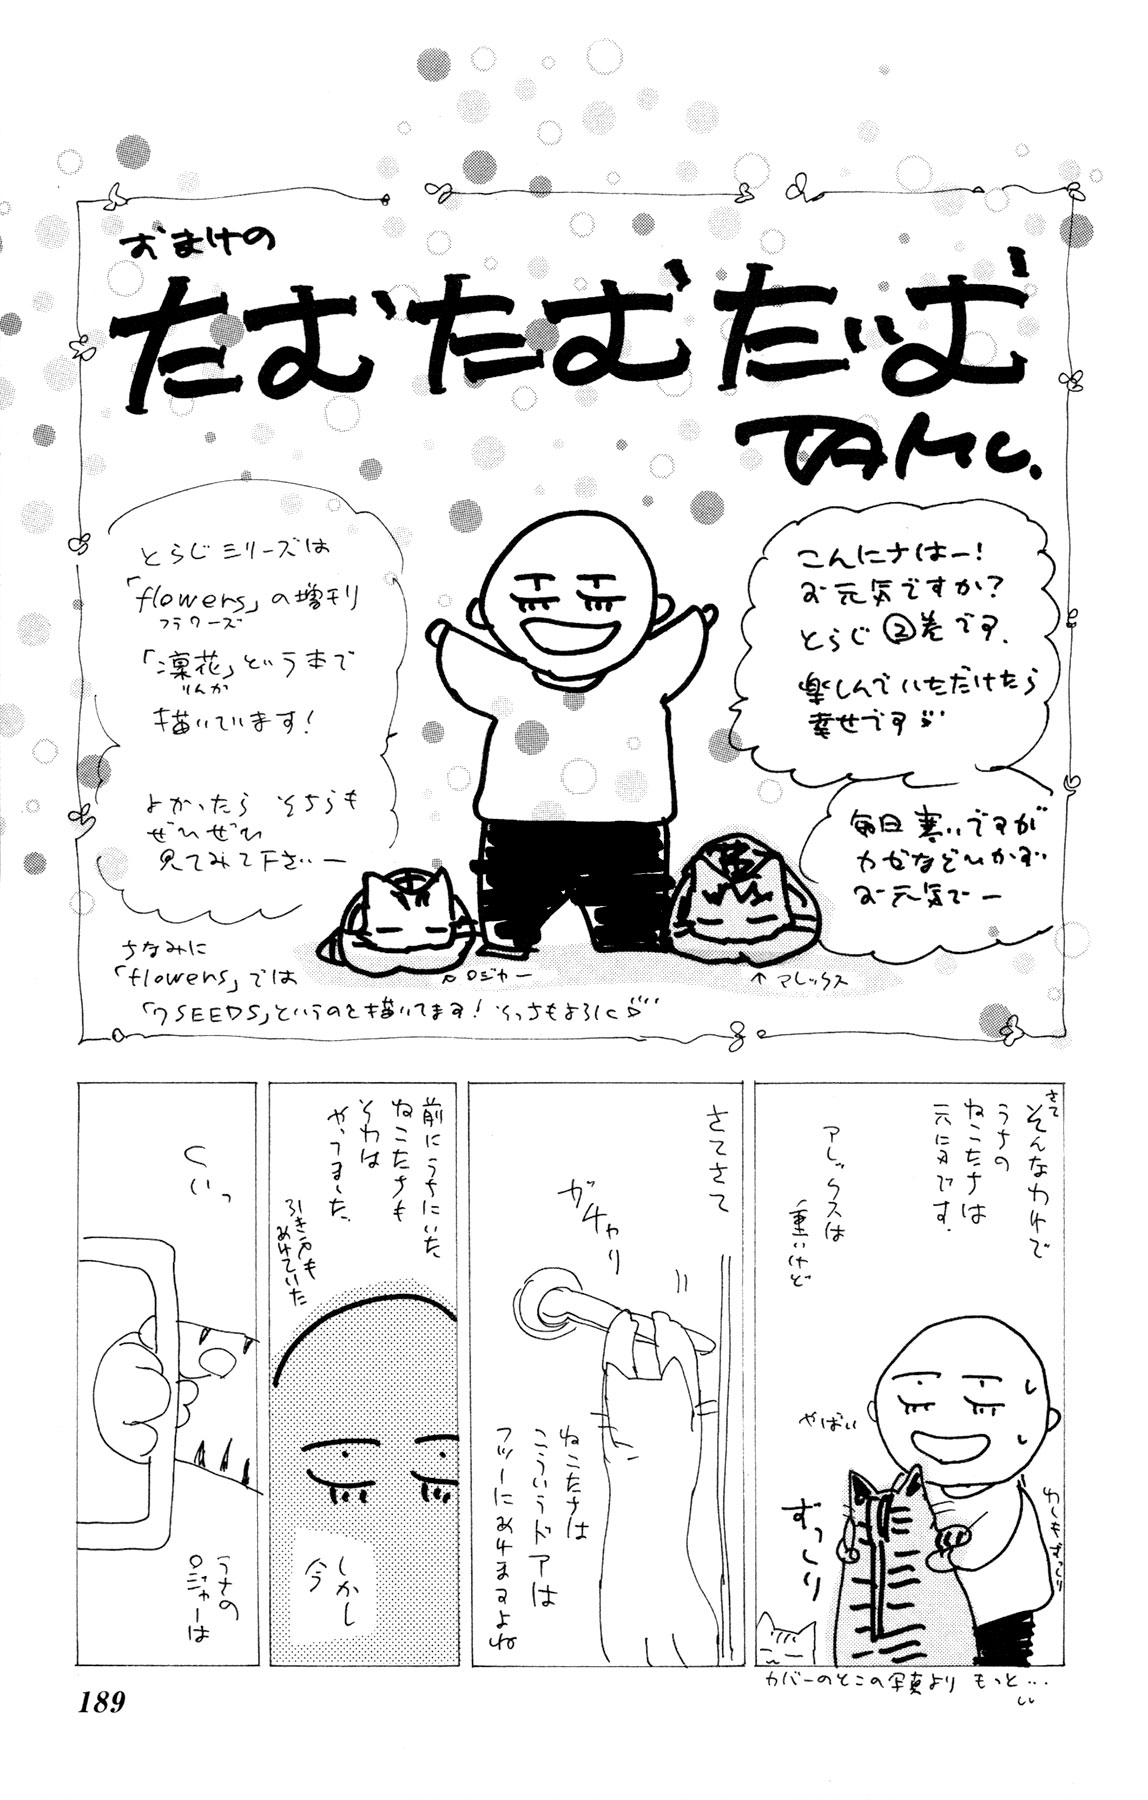 おまけの
たむたむたいむ
TAMU.
こんにちはー!
お元気ですか?
とらじ②巻です。
楽しんでいただけたら
幸せです
毎日寒いですが
カゼなどひかず
お元気でー
とらじシリーズは
「flowers」の増刊
フラワーズ
「凛花」という本で
りんか
描いています!
よかったら そちらも
ぜひぜひ
見てみて下さいー
ちなみに
「flowers」では
「7SEEDS」というのを描いてます!そっちもよろしく
ロジャー
↑アレックス
さて
そんなわけで
うちの
ねこたちは
元気です。
アレックスは
重いけど
やばい
ずっしり
わしもずっしり
カバーのそこの写真より もっと…
さてさて
ガチャり
ねこたちは
こういうドアは
フツーにあけますよね
前にうちにいた
ねこたちも
それは
やってました。
引き戸も
あけていた
しかし
今
くいっ
うちの
ロジャーは
189